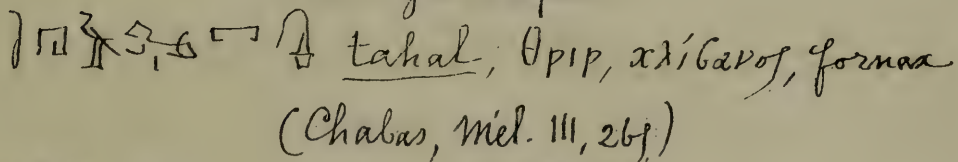 tahal, ⲑⲣⲓⲣ, κλίβανος, fornax
(Chabas, Mél. III, 2bf)